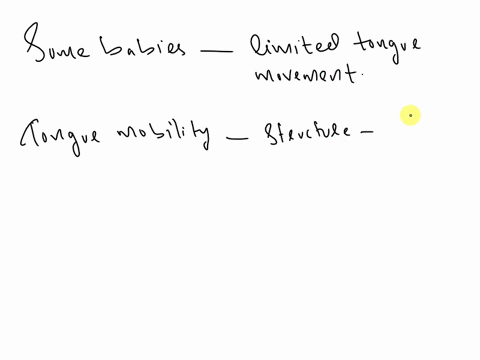 Some babies — limited tongue
movement.
Tongue mobility — structure —